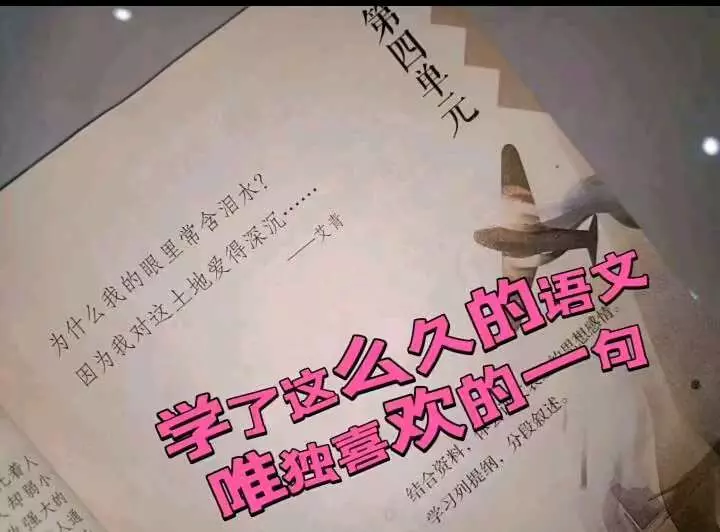 第四单元
为什么我的眼里常含泪水?
因为我对这土地爱得深沉……
——艾青
学了这么久的语文
唯独喜欢的一句
的思想感情。
结合资料,体
学习列提纲,分段叙述。
着人
却弱小
强大的
人通